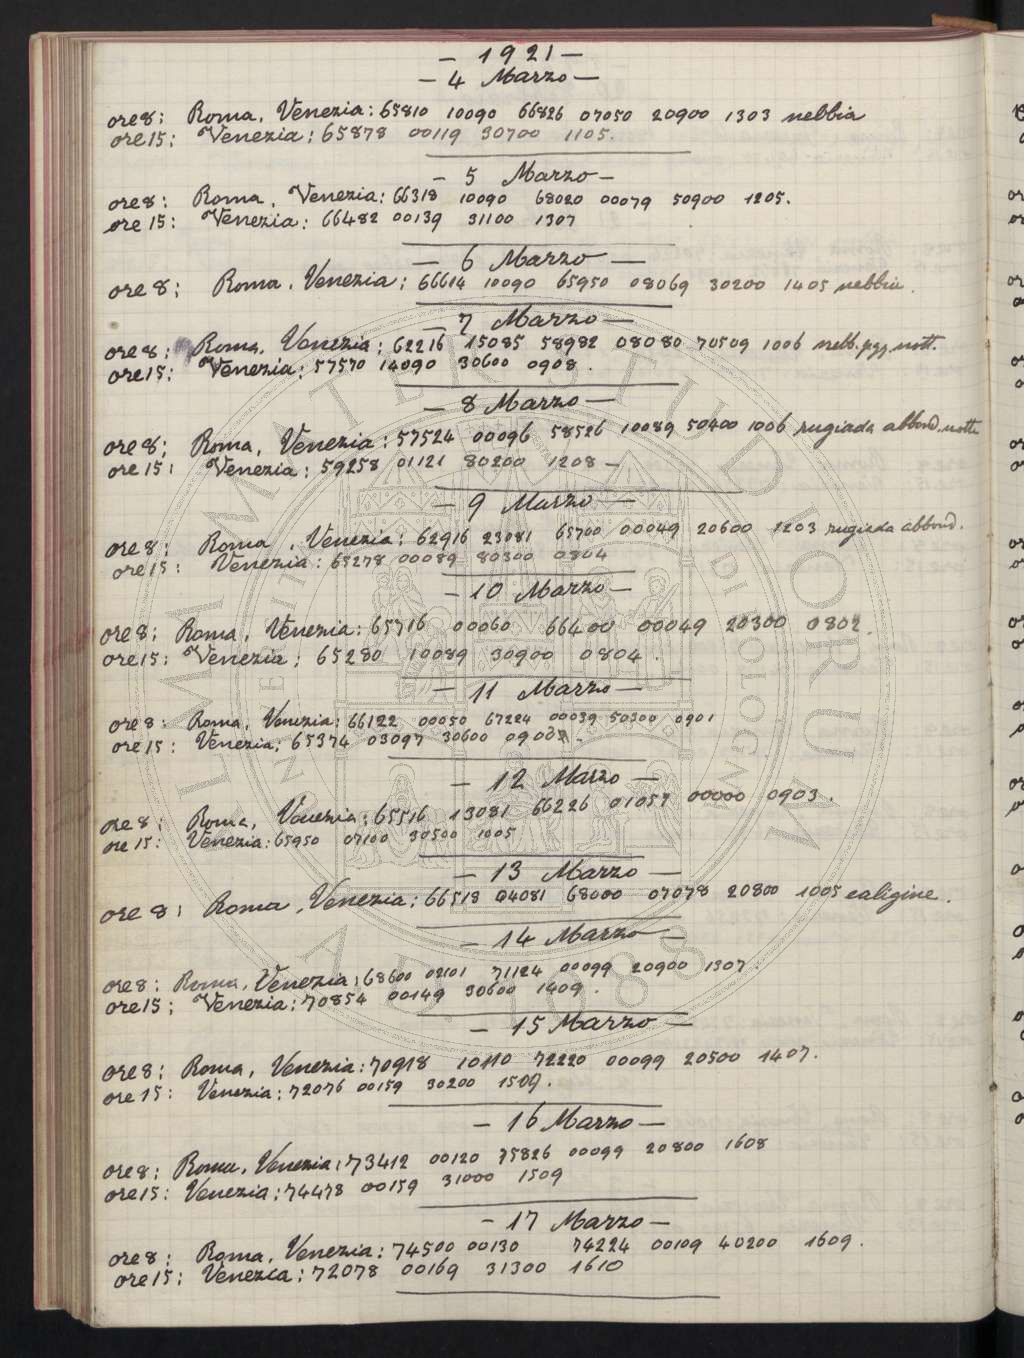 — 1921 —
— 4 Marzo —
ore 8: Roma, Venezia: 65810 10090 66826 07050 20900 1303 nebbia
ore 15: Venezia: 65878 00119 30700 1105.
— 5 Marzo —
ore 8: Roma, Venezia: 66318 10090 68020 00079 50900 1205.
ore 15: Venezia: 66482 00139 31100 1307
— 6 Marzo —
ore 8: Roma, Venezia: 66614 10090 65950 08069 30200 1405 nebbia.
— 7 Marzo —
ore 8: Roma, Venezia: 62216 15085 58982 08080 70509 1006 nebb. pgg nott.
ore 15: Venezia: 57570 14090 30600 0908.
— 8 Marzo —
ore 8: Roma, Venezia: 57524 00096 58526 10089 50400 1006 rugiada abbond. notte
ore 15: Venezia: 59258 01121 80200 1208 —
— 9 Marzo —
ore 8: Roma, Venezia: 62916 23081 65700 00049 20600 1203 rugiada abbond.
ore 15: Venezia: 65278 00089 80300 0804
— 10 Marzo —
ore 8: Roma, Venezia: 65716 00060 66400 00049 20300 0802.
ore 15: Venezia: 65280 10089 30900 0804.
— 11 Marzo —
ore 8: Roma, Venezia: 66122 00050 67224 00039 50300 0901
ore 15: Venezia: 65374 03097 30600
— 12 Marzo —
ore 8: Roma, Venezia: 65516 13081 66226 01057 00000 0903.
ore 15: Venezia: 65950 07100 30500 1005
— 13 Marzo —
ore 8: Roma, Venezia: 66518 04081 68000 07078 20800 1005 caligine.
— 14 Marzo —
ore 8: Roma, Venezia: 68600 02101 71124 00099 20900 1307.
ore 15: Venezia: 70854 00149 30600 1409.
— 15 Marzo —
ore 8: Roma, Venezia: 70918 10110 72220 00099 20500 1407.
ore 15: Venezia: 72076 00159 30200 1509.
— 16 Marzo —
ore 8: Roma, Venezia: 73412 00120 75826 00099 20800 1608
ore 15: Venezia: 74478 00159 31000 1509
— 17 Marzo —
ore 8: Roma, Venezia: 74500 00130 74224 00109 40200 1609.
ore 15: Venezia: 72078 00169 31300 1610